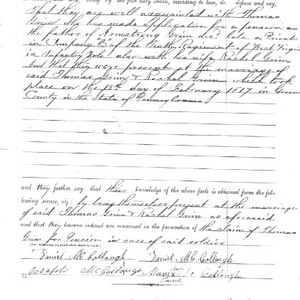 That they are well acquainted with Thomas
who has made application for a pension as
the father of Armstrong Grim dec'd late a Private
in Company E of the Tenth Regiment of West Virginia
Infantry Vols also with his wife Rachel Grim
and that they were present at the marriage of
said Thomas Grim & Rachel Grim which took
place on the 13th day of February 1817 in Green
County in the State of Pennsylvania
and they further say that their knowledge of the above facts is obtained from the
by being themselves present at the marriage
of said Thomas Grim & Rachel Grim as aforesaid
and that they have no interest nor concern in the prosecution of the claim of Thomas
Grim for Pension in case of said soldier
Daniel McCollough Daniel McCollough
McCollough Mary her x Collough